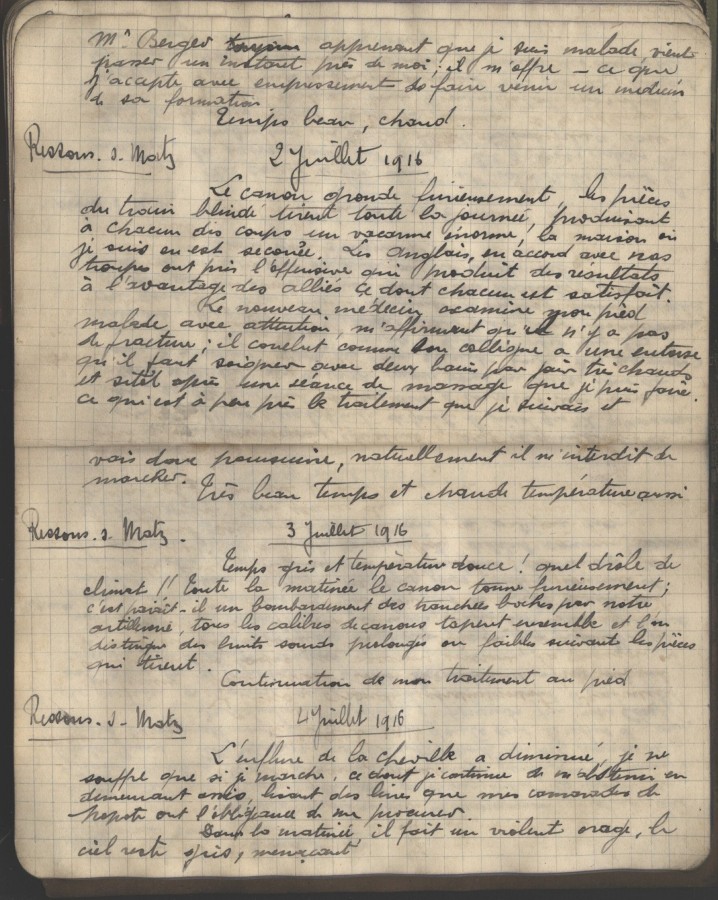 Mr Berger apprenant que je suis malade, vient
passer un instant près de moi ; il m'offre - ce que
j'acepte avec empressement de faire venir un médecin
de sa formation
Temps beau, chaud.
Ressons. s. Matz 2 Juillet 1916
Le canon gronde furieusement, les pièces
du train blindé tirent toute la journée, produisant
à chacun des coups un vacarme énorme, la maison où
je suis en est secouée. Les anglais, en accord avec nos
troupes ont pris l'offensive qui produit des résultats
à l'avantage des alliés ce dont chacun est satisfait.
Le nouveau médecin examine mon pied
malade avec attention, m'affirmant qu'il n'y a pas
de fracture ; il conclut comme son collègue à une entorse
qu'il faut soigner avec deux bains par jour très chauds
et sitôt après une séance de massage que je puis faire.
ce qui est à peu près le traitement que je suivais et
vais donc poursuivre, naturellement il m'interdit de
marcher. Très beau temps et chaude température aussi
Ressons. s. Matz. 3 Juillet 1916
Temps gris et température douce ! quel drôle de
climat !! Toute la matinée le canon tonne furieusement ;
c'est parait-il un bombardement des tranchées boches par notre
artillerie, tous les calibres de canons tapent ensemble et l'on
distingue des bruits sourds prolongés ou faibles suivant les pièces
qui tirent.
Continuation de mon traitement au pied
Ressons. s. Matz 4 Juillet 1916
L'enflure de la cheville a diminué, je ne
souffre que si je marche, ce dont je continue de m'abstenir en
demeurant assis, lisant des livres que mes camarades de
popote ont l'obligeance de me procurer.
Dans la matinée, il fait un violent orage, le
ciel reste gris, menaçant